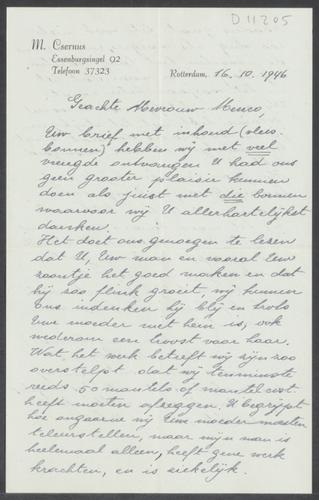 D 11205
M. Csernus
Essenburgsingel 92
Telefoon 37323
Rotterdam, 16.10.1946
Geachte Mevrouw Menco,
Uw brief met inhoud (vlees-
bonnen) hebben wij met veel
vreugde ontvangen U had ons
geen grooter plaisir kunnen
doen als juist met die bonnen
waarvoor wij U allerhartelijkst
danken.
Het doet ons genoegen te lezen
dat U, Uw man en vooral Uw
zoontje het goed maken en dat
hij zoo flink groeit, wij kunnen
ons indenken hoe blij en trots
Uwe moeder met hem is, ook
wederom een troost voor haar.
Wat het werk betreft wij zijn zoo
overstelpt dat wij tenminste
reeds 50 mantels of mantelcost
heeft moeten afzeggen. U begrijpt
hoe ongaarne wij Uwe moeder moeten
teleurstellen, maar mijn man is
heelemaal alleen, heeft geen werk
krachten, en is ziekelijk.